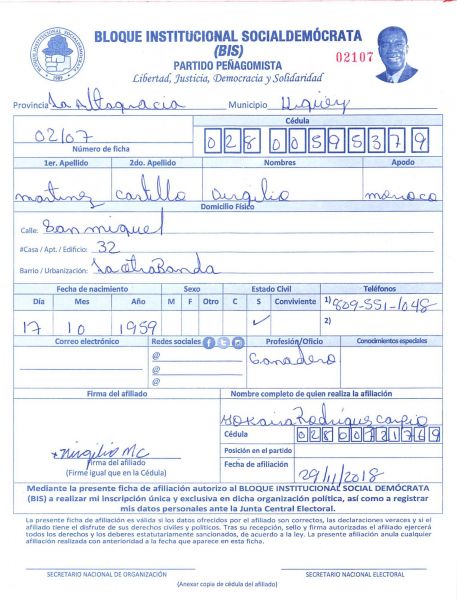 BLOQUE INSTITUCIONAL SOCIALDEMÓCRATA
(BIS)
PARTIDO PEÑAGOMISTA
Libertad, Justicia, Democracia y Solidaridad
02107
Provincia La Altagracia Municipio Higüey
02/07
Número de ficha
Cédula
028 0059537 9
1er. Apellido 2do. Apellido Nombres Apodo
martinez castillo Virgilio monaco
Domicilio Físico
Calle: San miguel
#Casa / Apt. / Edificio: 32
Barrio / Urbanización: La otra Banda
Fecha de nacimiento Sexo Estado Civil Teléfonos
Día Mes Año M F Otro C S Conviviente 1) 809-551-1048
17 10 1959 ✓ 2)
Correo electrónico Redes sociales Profesión/Oficio Conocimientos especiales
@
@
@
Ganadero
Firma del afiliado Nombre completo de quien realiza la afiliación
Rodríguez
Cédula 028 0073176 9
Virgilio MC
Firma del afiliado
(Firme igual que en la Cédula)
Posición en el partido
Fecha de afiliación 29/11/2018
Mediante la presente ficha de afiliación autorizo al BLOQUE INSTITUCIONAL SOCIAL DEMÓCRATA
(BIS) a realizar mi inscripción única y exclusiva en dicha organización política, así como a registrar
mis datos personales ante la Junta Central Electoral.
La presente ficha de afiliación es válida si los datos ofrecidos por el afiliado son correctos, las declaraciones veraces y si el
afiliado tiene el disfrute de sus derechos civiles y políticos. Tras su recepción, sello y firma autorizadas el afiliado ejercerá
todos los derechos y los deberes estatutariamente sancionados, de acuerdo a la ley. La presente afiliación anula cualquier
afiliación realizada con anterioridad a la fecha que aparece en esta ficha.
SECRETARIO NACIONAL DE ORGANIZACIÓN SECRETARIO NACIONAL ELECTORAL
(Anexar copia de cédula del afiliado)